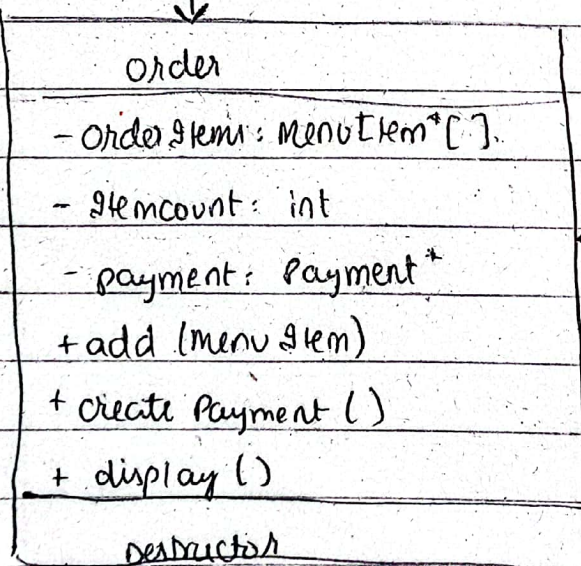 order
- Order Items: MenuItem*[].
- Itemcount: int
- payment: Payment*
+ add (menu Item)
+ create Payment ()
+ display ()
Destructor